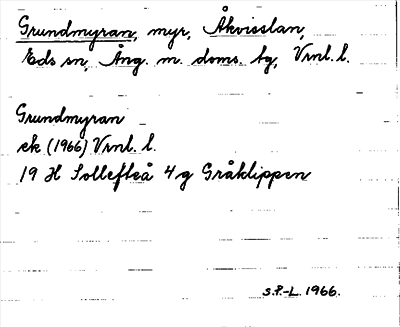 Grundmyran, myr, Åkvisslan,
Eds sn, Ång. m. doms. bg, Vrnl. l.
Grundmyran
ek (1966) Vrnl. l.
19 H Sollefteå 4 g Gråklippen
S.P.-L. 1966.